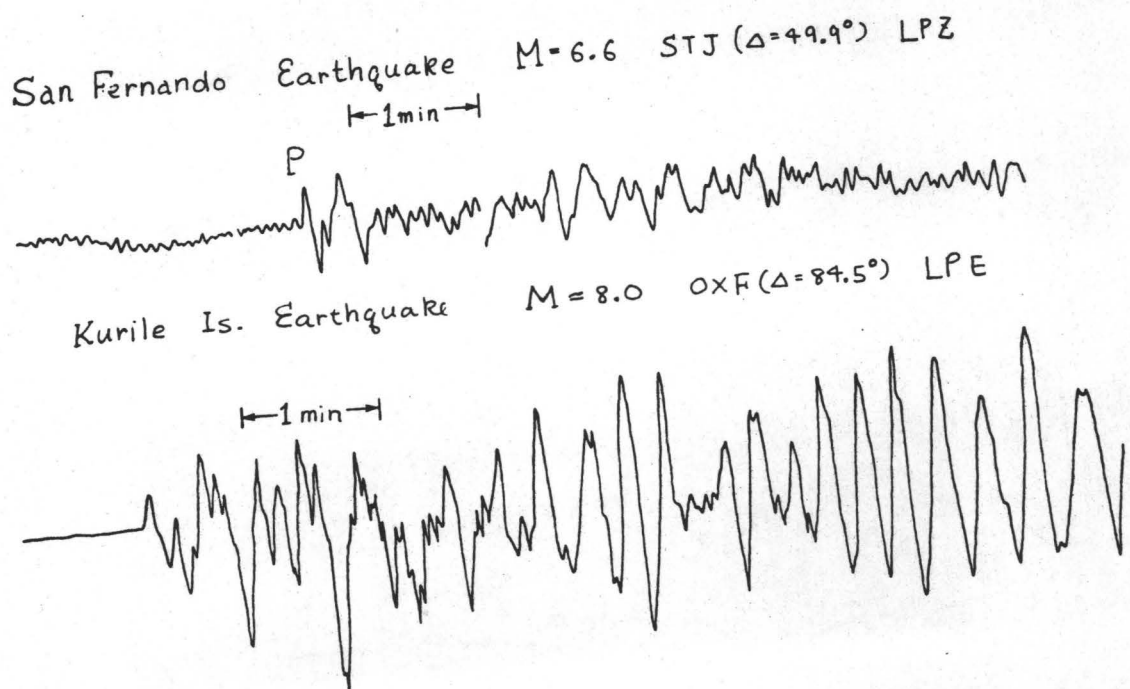 San Fernando Earthquake M=6.6 STJ (Δ=49.9°) LPZ
1min
P
Kurile Is. Earthquake M=8.0 OXF (Δ=84.5°) LPE
1 min